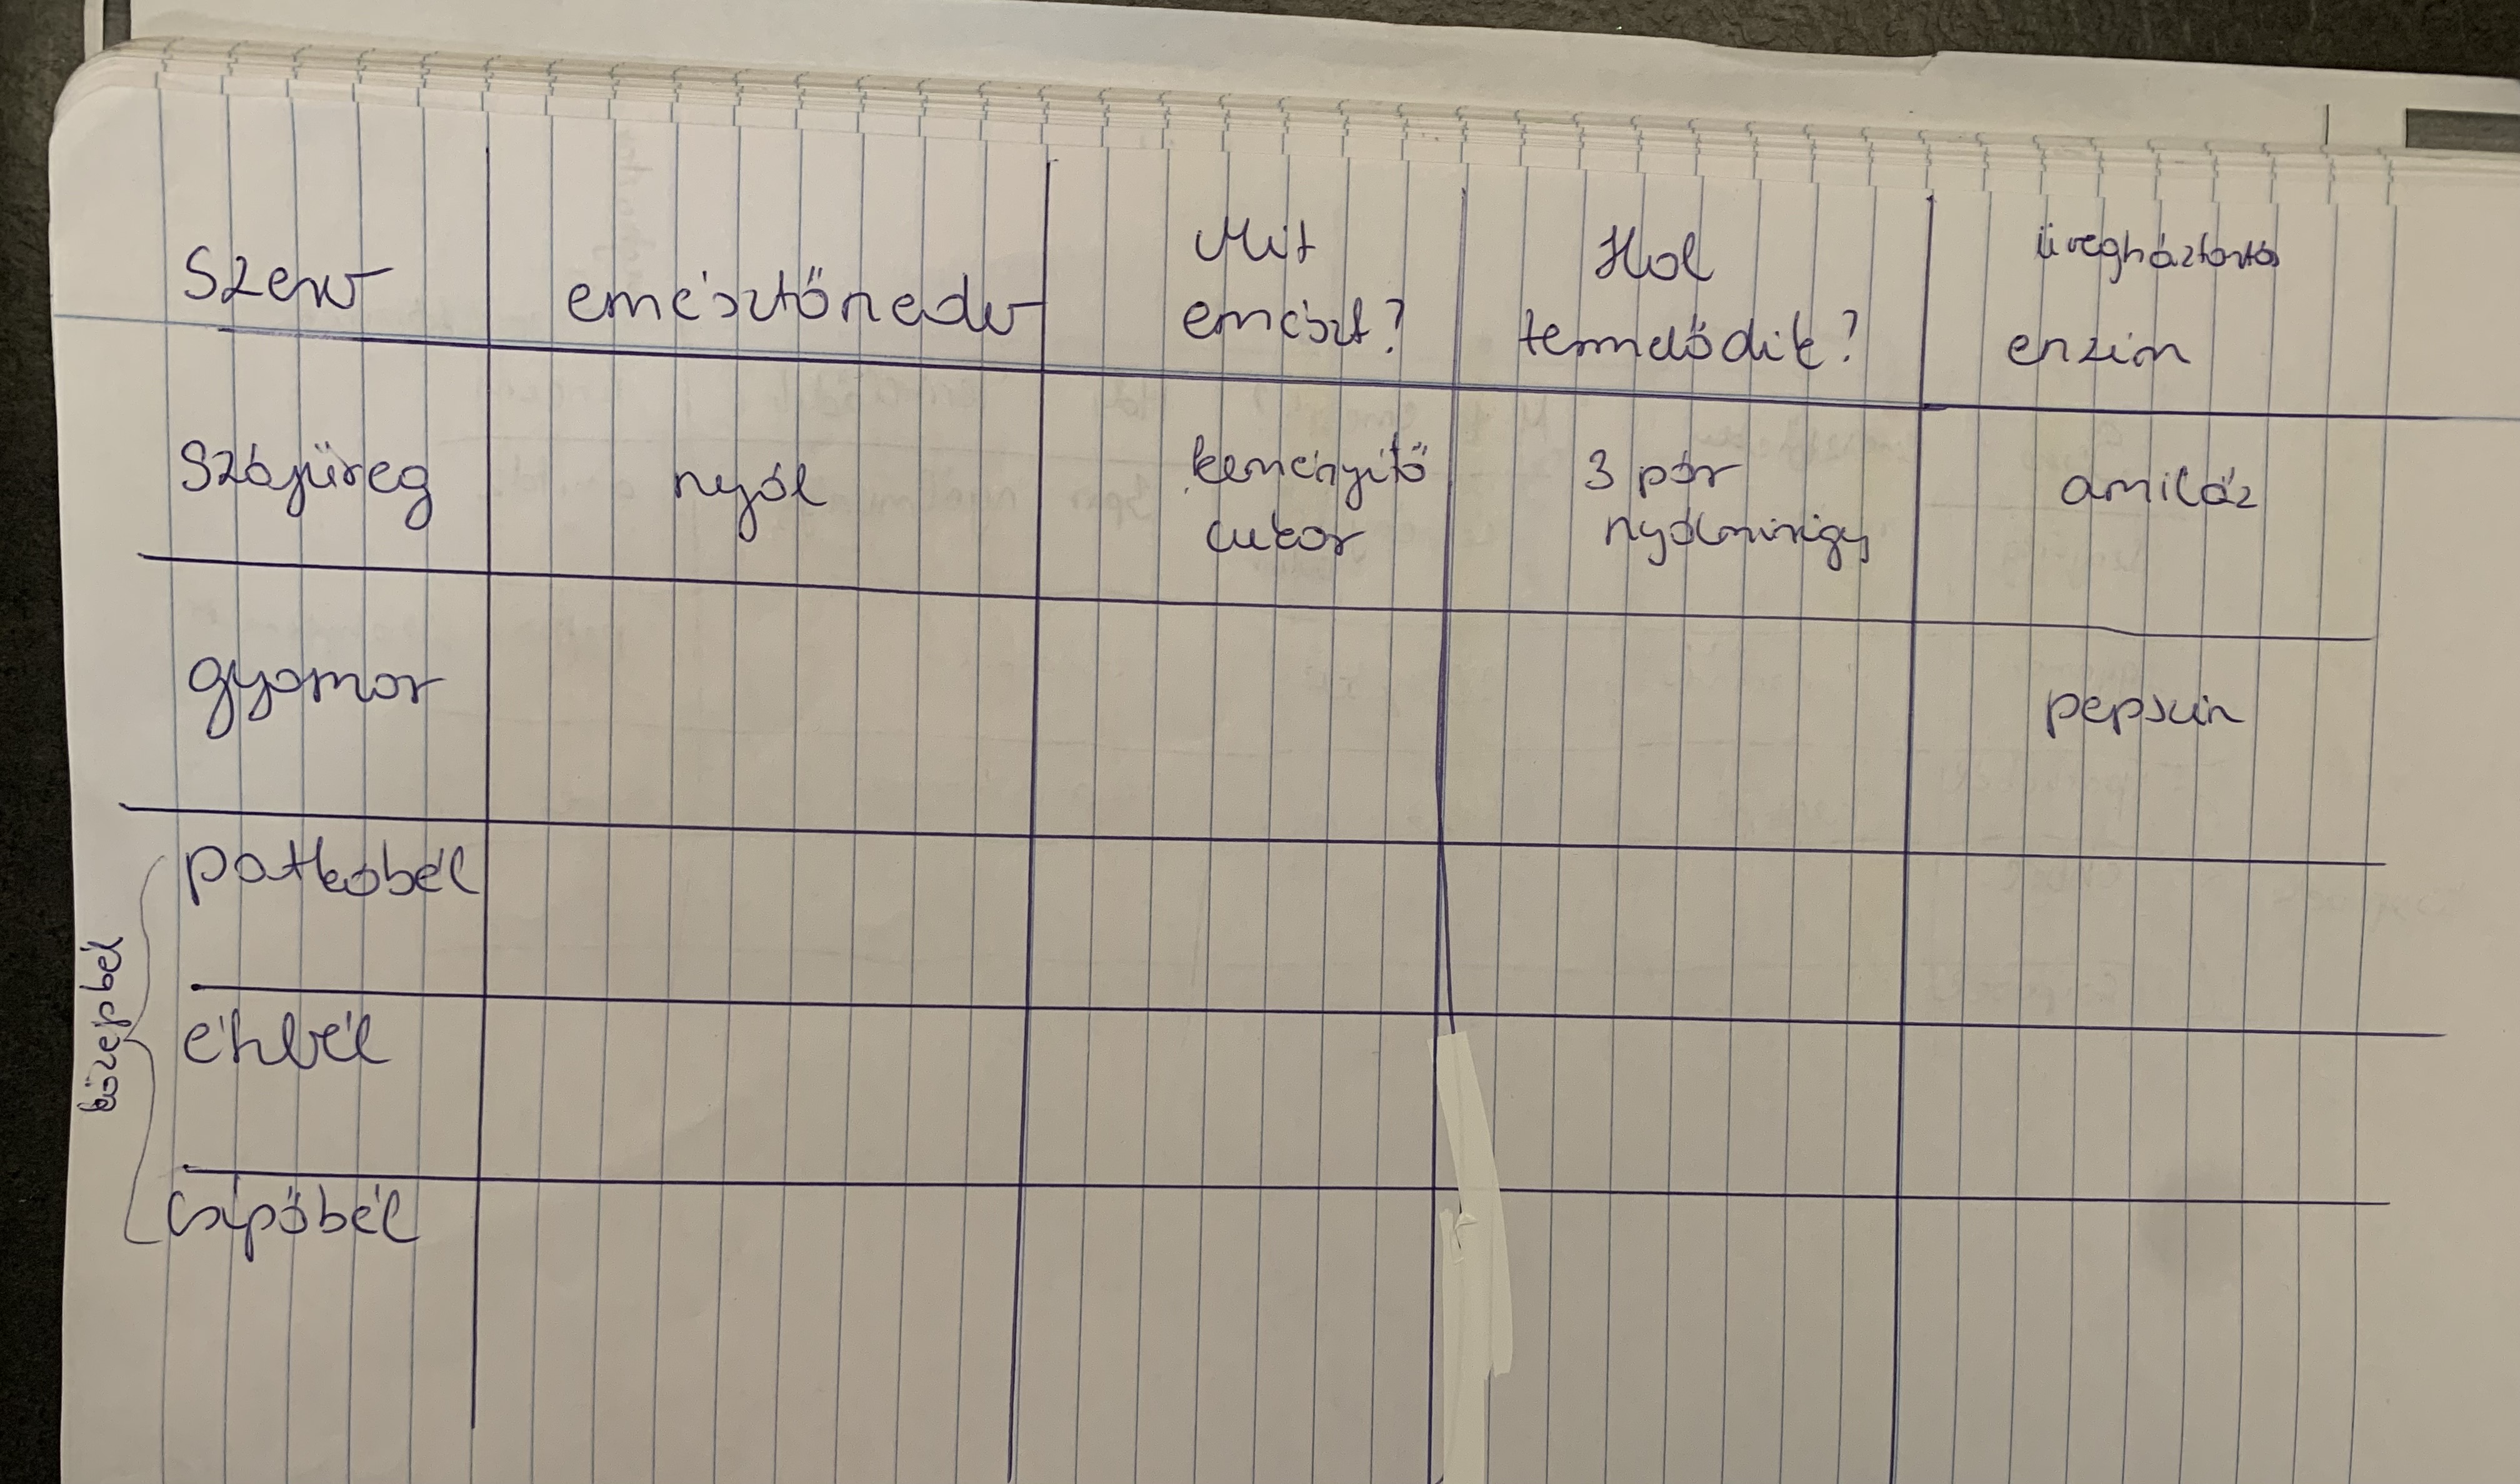 Szerv emésztőnedv Mit emészt? Hol termelődik? üvegháztartás enzim
Szájüreg nyál keményítő cukor 3 pár nyálmirigy amiláz
gyomor pepszin
középbél
patkóbél
éhbél
csípőbél